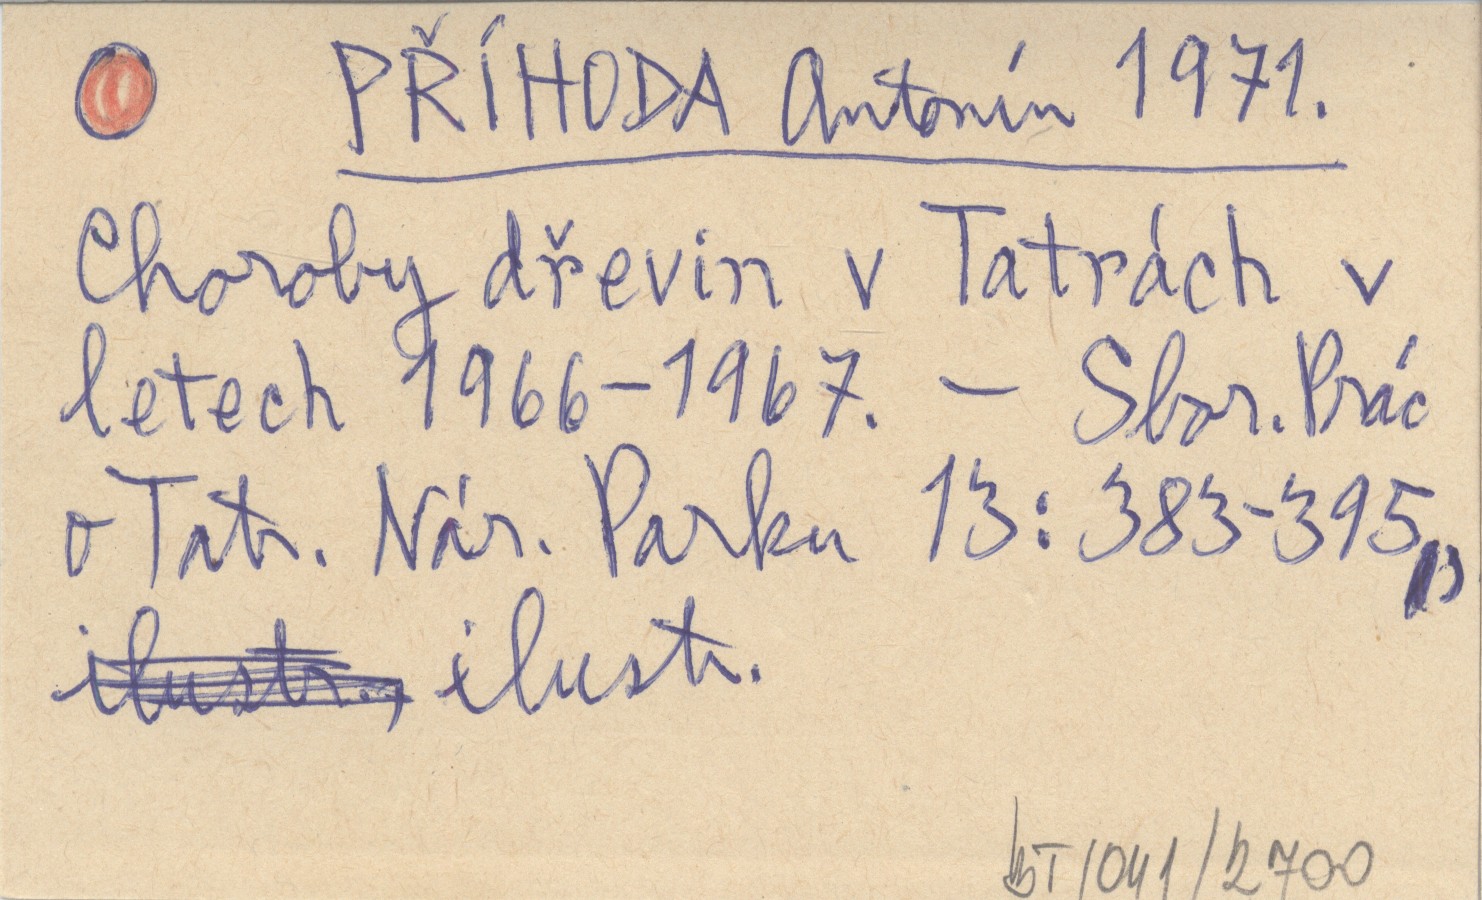 PŘÍHODA Antonín 1971.
Choroby dřevin v Tatrách v
letech 1966-1967. - Sbor. Prác
o Tatr. Nár. Parku 13: 383-395,
ilustr., ilustr.
/041/2700